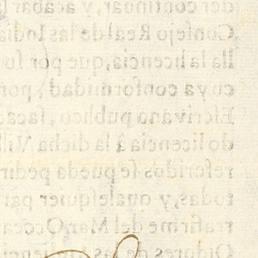 der continuar, y acabar la
Consejo Real de las India
lla la licencia, que por su
cuya conformidad, por
Escrivano publico, saca
do licencia à la dicha Vill
referidos se pueda pedir
todas, y qualesquier par
reasirme del Mar, Occea
Oidores de las Audiencia